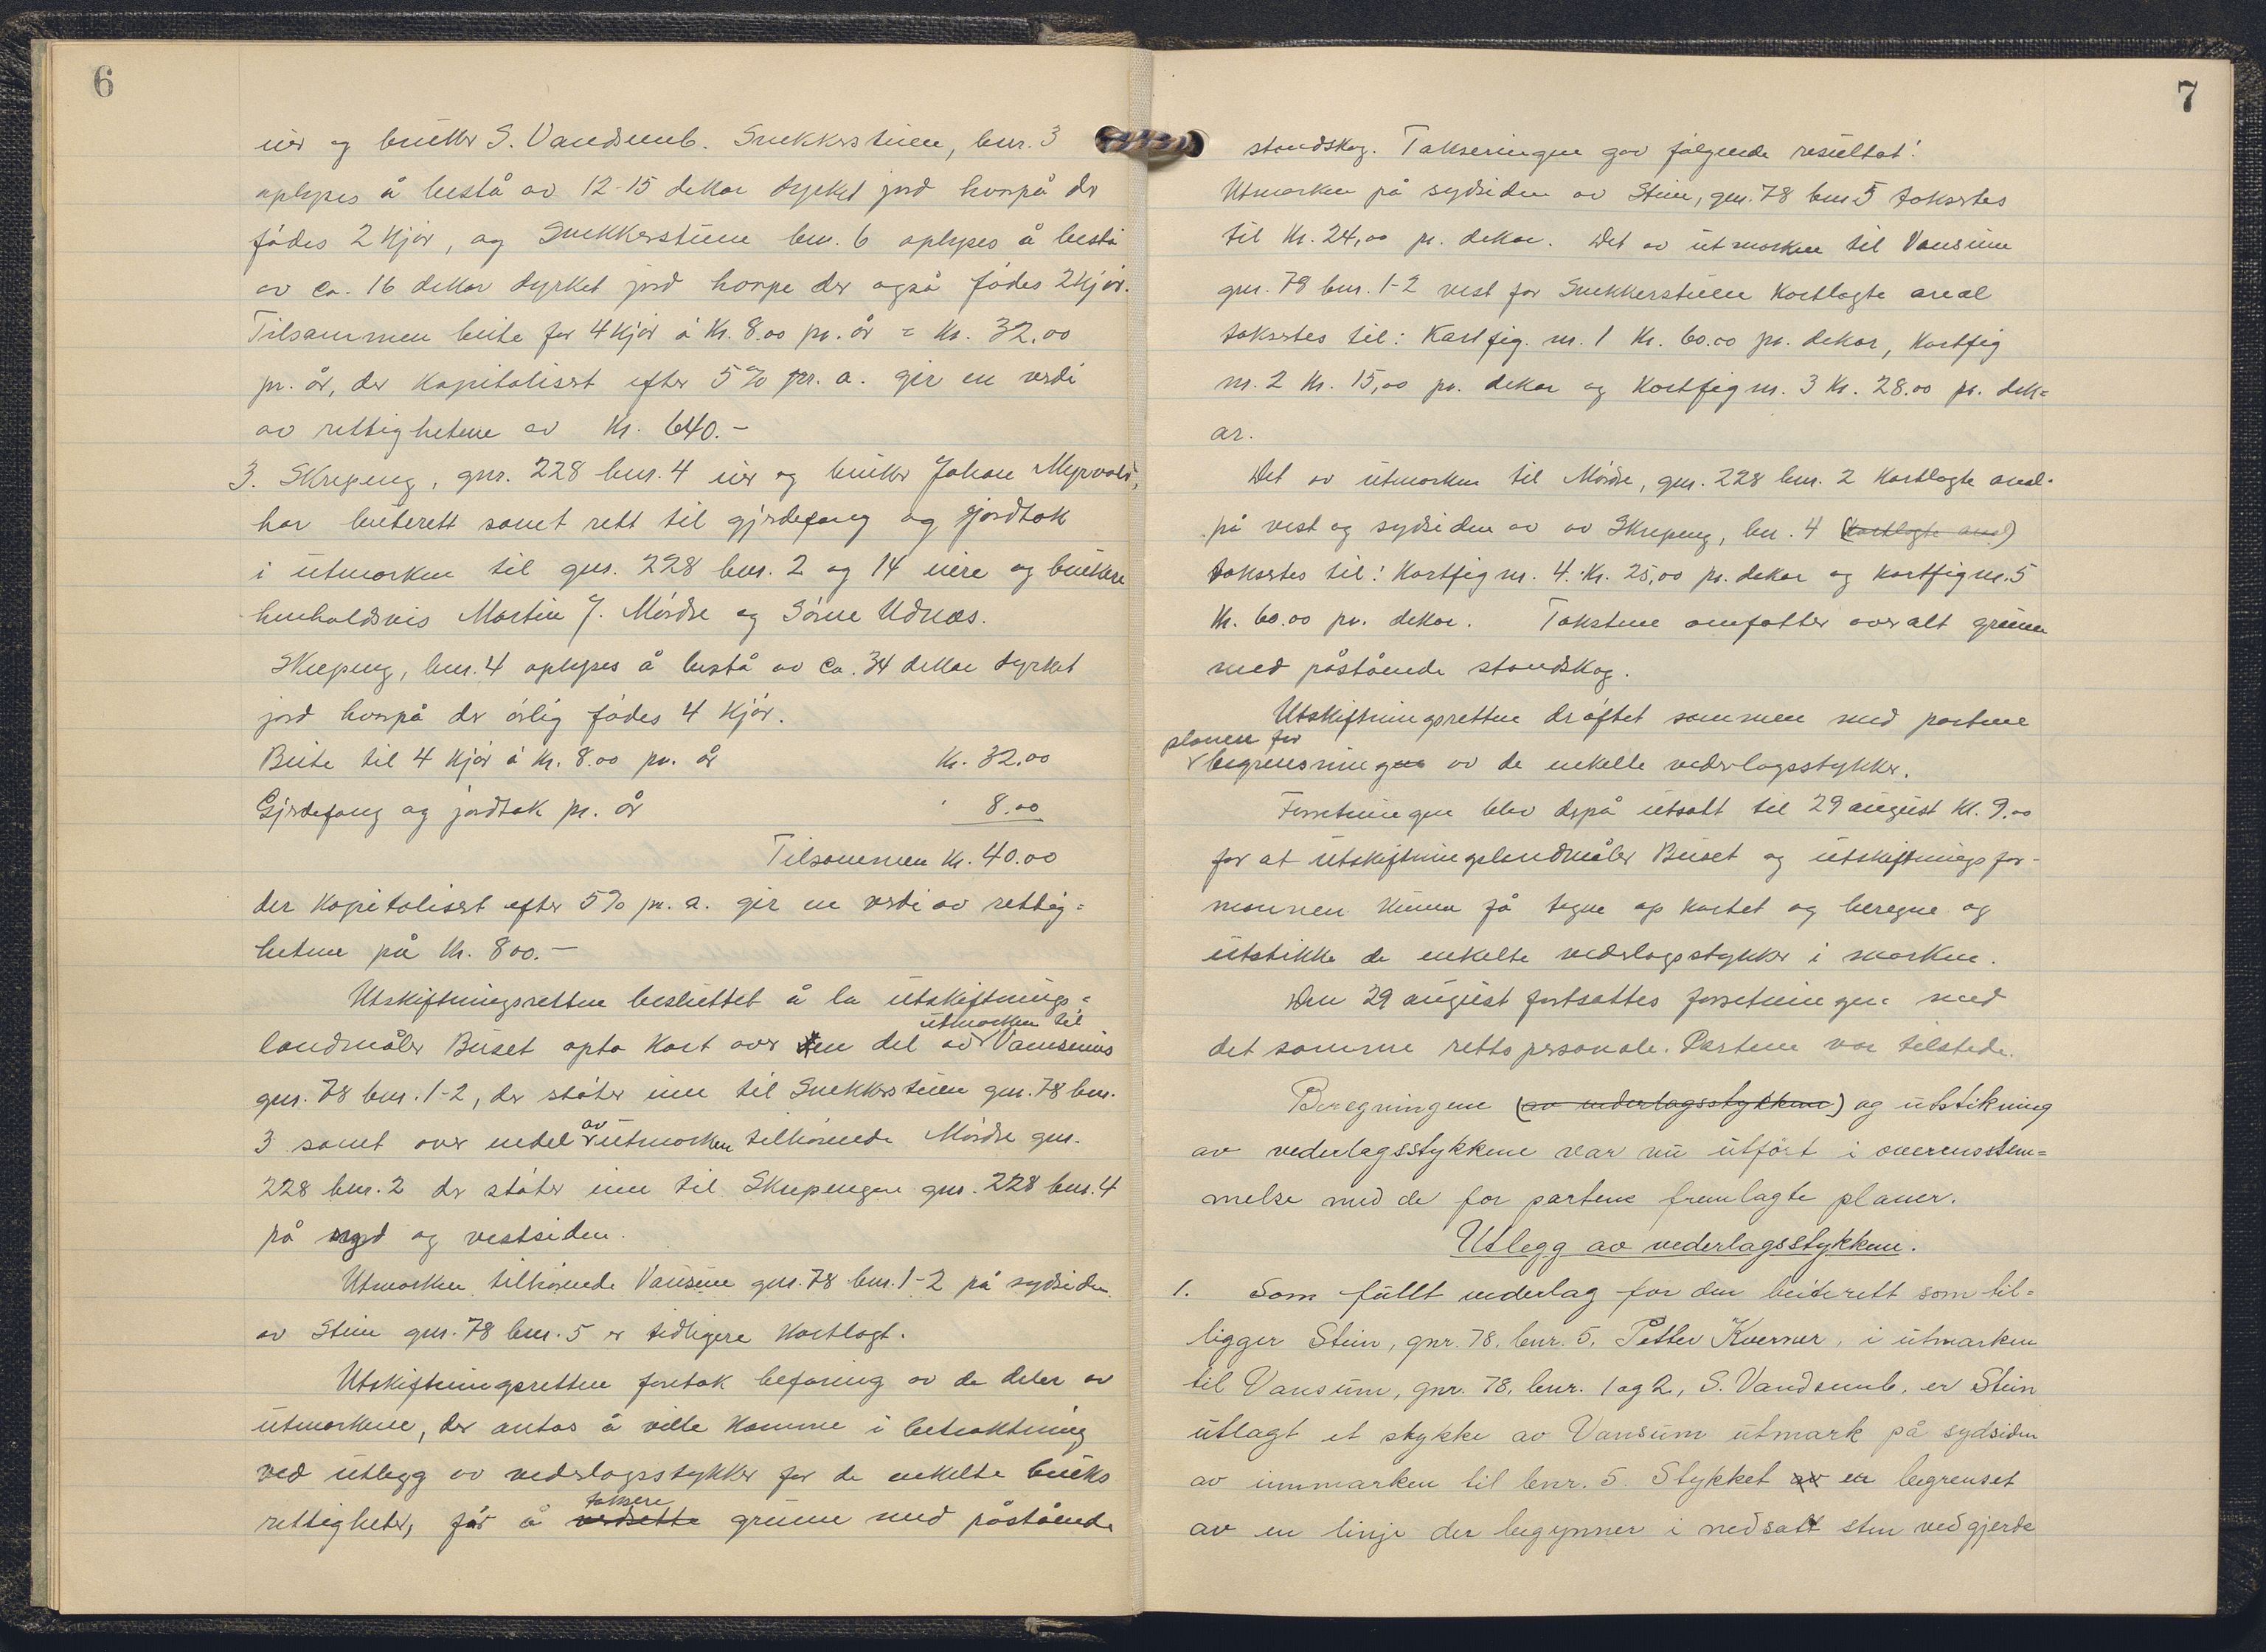 6
eier og bruker S. Vandsemb. Snekkerstuen, bnr. 3
oplyses å bestå av 12-15 dekar dyrket jord hvorpå der
födes 2 kjör, og Snekkerstuen bnr. 6 oplyses å bestå
av ca. 16 dekar dyrket jord hvorpe der også födes 2 kjör.
Tilsammen beite for 4 kjör á Kr. 8.00 pr. år = Kr. 32.00
pr. år, der kapitalisert efter 5% pr. a. gir en verdi
av rettighetene av Kr. 640.-
3. Skrepeng, gnr. 228 bnr. 4 eier og bruker Johan Myrvold,
har beiterett samt rett til gjerdefang og jordtak
i utmarken til gnr. 228 bnr. 2 og 14 eiere og brukere
henholdsvis Martin J. Mördre og Sörine Udnæs.
Skrepeng, bnr. 4 oplyses å bestå av ca. 34 dekar dyrket
jord hvorpå der årlig födes 4 kjör.
Beite til 4 kjör á Kr. 8.00 pr. år Kr. 32.00
Gjerdefang og jordtak pr. år " 8.00
Tilsammen Kr. 40.00
der kapitalisert efter 5% pr. a. gir en verdi av rettig=
hetene på Kr. 800.-
Utskiftningsretten besluttet å la utskiftnings=
landmåler Buset opta kart over den del av utmarken til Vansums
gnr. 78 bnr. 1-2, der stöter inn til Snekkerstuen gnr. 78 bnr.
3 samt over endel av utmarken tilhörende Mördre gnr.
228 bnr. 2 der stöter inn til Skrepengen gnr. 228 bnr. 4
på syd og vestsiden.
Utmarken tilhörende Vansum gnr. 78 bnr. 1-2 på sydsiden
av Stein gnr. 78 bnr. 5 er tidligere kartlagt.
Utskiftningsretten foretok befaring av de deler av
utmarkene, der antas å ville komme i betraktning
ved utlegg av vederlagsstykker for de enkelte bruks
rettigheter, for å verdsette taksere grunn med påstående
7
standskog. Takseringen gav fölgende resultat:
Utmarken på sydsiden av Stein, gnr. 78 bnr 5 taksertes
til Kr. 24,00 pr. dekar. Det av utmarken til Vansum
gnr. 78 bnr. 1-2 vest for Snekkerstuen kartlagte areal
taksertes til: Kartfig. nr. 1 Kr. 60.00 pr. dekar, Kartfig
nr. 2 Kr. 15,00 pr. dekar og Kartfig nr. 3 Kr. 28.00 pr. dek=
ar.
Det av utmarken til Mördre, gnr. 228 bnr. 2 kartlagte areal
på vest og sydsiden av av Skrepeng, bnr. 4 (kartlagte areal)
taksertes til: Kartfig nr. 4. Kr. 25,00 pr. dekar og kartfig nr. 5
Kr. 60.00 pr. dekar. Takstene omfatter overalt grunn
med påstående standskog.
Utskiftningsretten dröftet sammen med partene
planen for
begrensningen av de enkelte vederlagsstykker.
Forretningen blev derpå utsatt til 29 august kl. 9.00
for at utskiftningslandmåler Buset og utskiftningsfor-
mannen kunne få tegne op kartet og beregne og
utstikke de enkelte vederlagsstykker i marken.
Den 29 august fortsattes forretningen med
det samme rettspersonale. Partene var tilstede.
Beregningene (av vederlagsstykkene) og utstikning
av vederlagsstykkene var nu utfört i overensstem=
melse med de for partene fremlagte planer.
Utlegg av vederlagsstykkene.
1. Som fullt vederlag for den beiterett som til=
ligger Stein, gnr. 78, bnr. 5, Petter Kverner, i utmarken
til Vansum, gnr. 78, bnr. 1 og 2, S. Vandsemb, er Stein
utlagt et stykke av Vansum utmark på sydsiden
av innmarken til bnr. 5. Stykket av er begrenset
av en linje der begynner i nedsatt sten ved gjerde